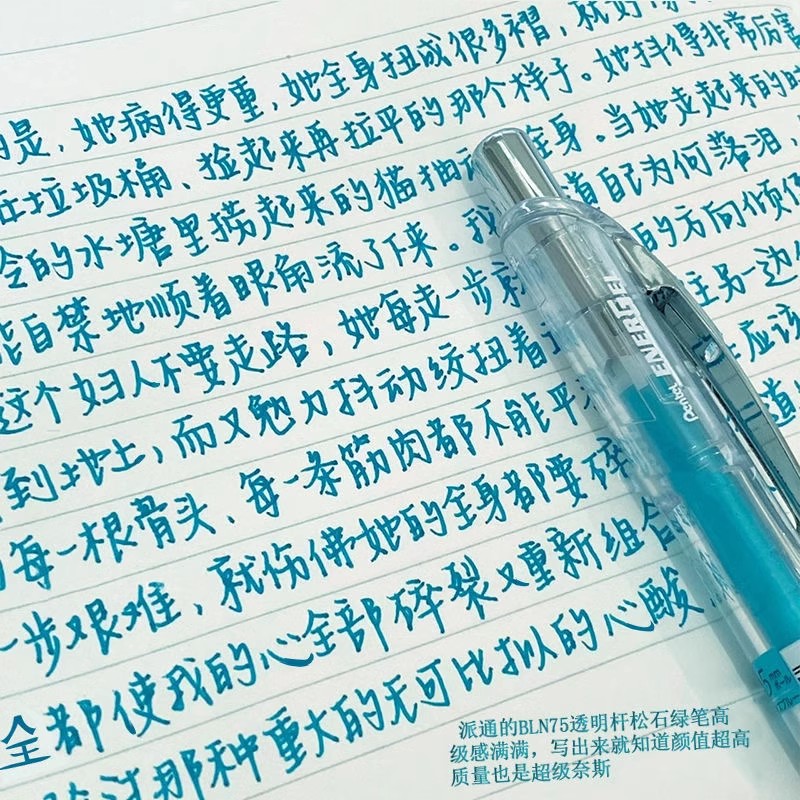 是，她病得更重，她全身扭成很多褶，就好像
在垃圾桶、捡起来再拉平的那个样子。她抖得非常厉害
的水塘里捞起来的猫抽动全身。当她走起来的时
自禁地顺着眼角流了下来。我 道自己为何落泪，
这个妇人不要走路，她每走一步就 的方向倾
到地上，而又勉力抖动绞扭着 另一边
每一根骨头、每一条筋肉都不能平 应该
一步艰难，就仿佛她的全身都要碎 道
都使我的心全部碎裂又重新组合
全 那种重大的无可比拟的心酸
Pentel ENERGEL
5mm
ボール
派通的BLN75透明杆松石绿笔高
级感满满，写出来就知道颜值超高
质量也是超级奈斯